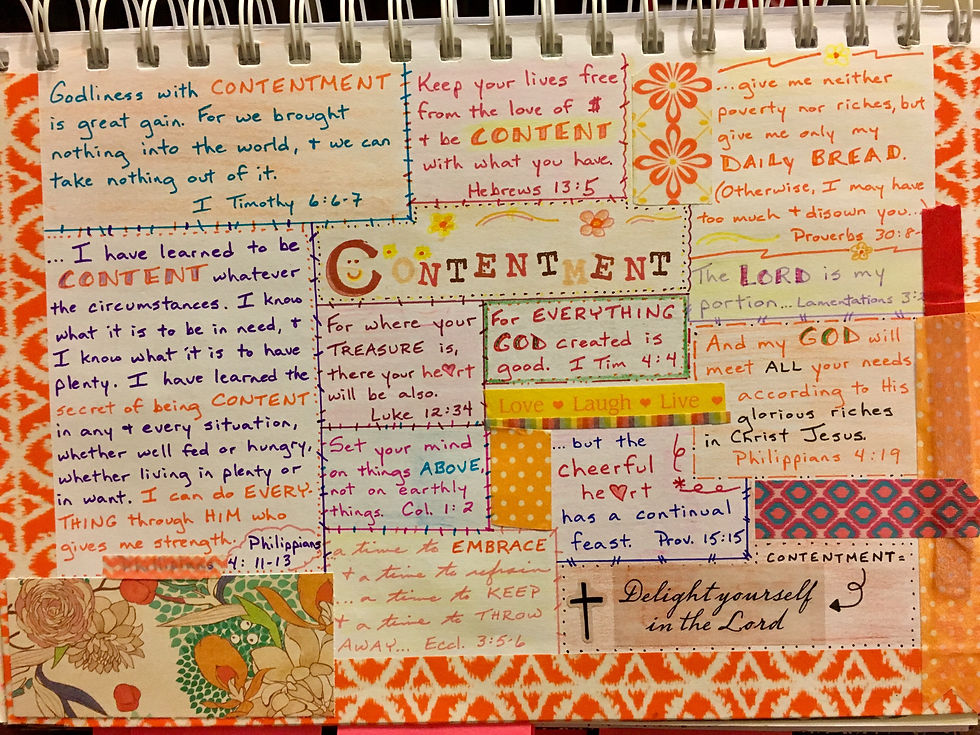 Godliness with CONTENTMENT
is great gain. For we brought
nothing into the world, + we can
take nothing out of it.
I Timothy 6:6-7
Keep your lives free
from the love of $
+ be CONTENT
with what you have.
Hebrews 13:5
...give me neither
poverty nor riches, but
give me only my
DAILY BREAD.
(Otherwise, I may have
too much + disown you...
Proverbs 30:8-
... I have learned to be
CONTENT whatever
the circumstances. I know
what it is to be in need, +
I know what it is to have
plenty. I have learned the
secret of being CONTENT
in any + every situation,
whether well fed or hungry,
whether living in plenty or
in want. I can do EVERY-
THING through HIM who
gives me strength.
Philippians
4: 11-13
CONTENTMENT
The LORD is my
portion... Lamentations 3:
For where your
TREASURE is,
there your he♥rt
will be also.
Luke 12:34
For EVERYTHING
GOD created is
good. I Tim 4:4
And my GOD will
meet ALL your needs
according to His
glorious riches
in Christ Jesus.
Philippians 4:19
Love ♥ Laugh ♥ Live ♥
Set your mind
on things ABOVE,
not on earthly
things. Col. 1:2
...but the
cheerful
he♥rt
has a continual
feast. Prov. 15:15
a time to EMBRACE
+ a time to refrain
... a time to KEEP
+ a time to THROW
AWAY... Eccl. 3:5-6
CONTENTMENT=
Delight yourself
in the Lord